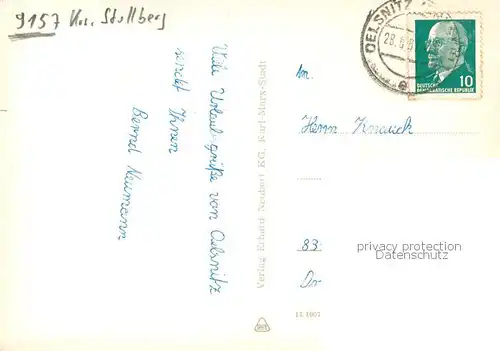 9157 Krs. Stollberg
Viele Urlaubsgrüße von Oelsnitz
sendet Ihnen
Bernd Neumann
Verlag Erhard Neubert KG, Karl-Marx-Stadt
OELSNITZ
28.
10
DEUTSCHE
DEMOKRATISCHE REPUBLIK
An
Herrn
83
privacy protection
Datenschutz
Dr